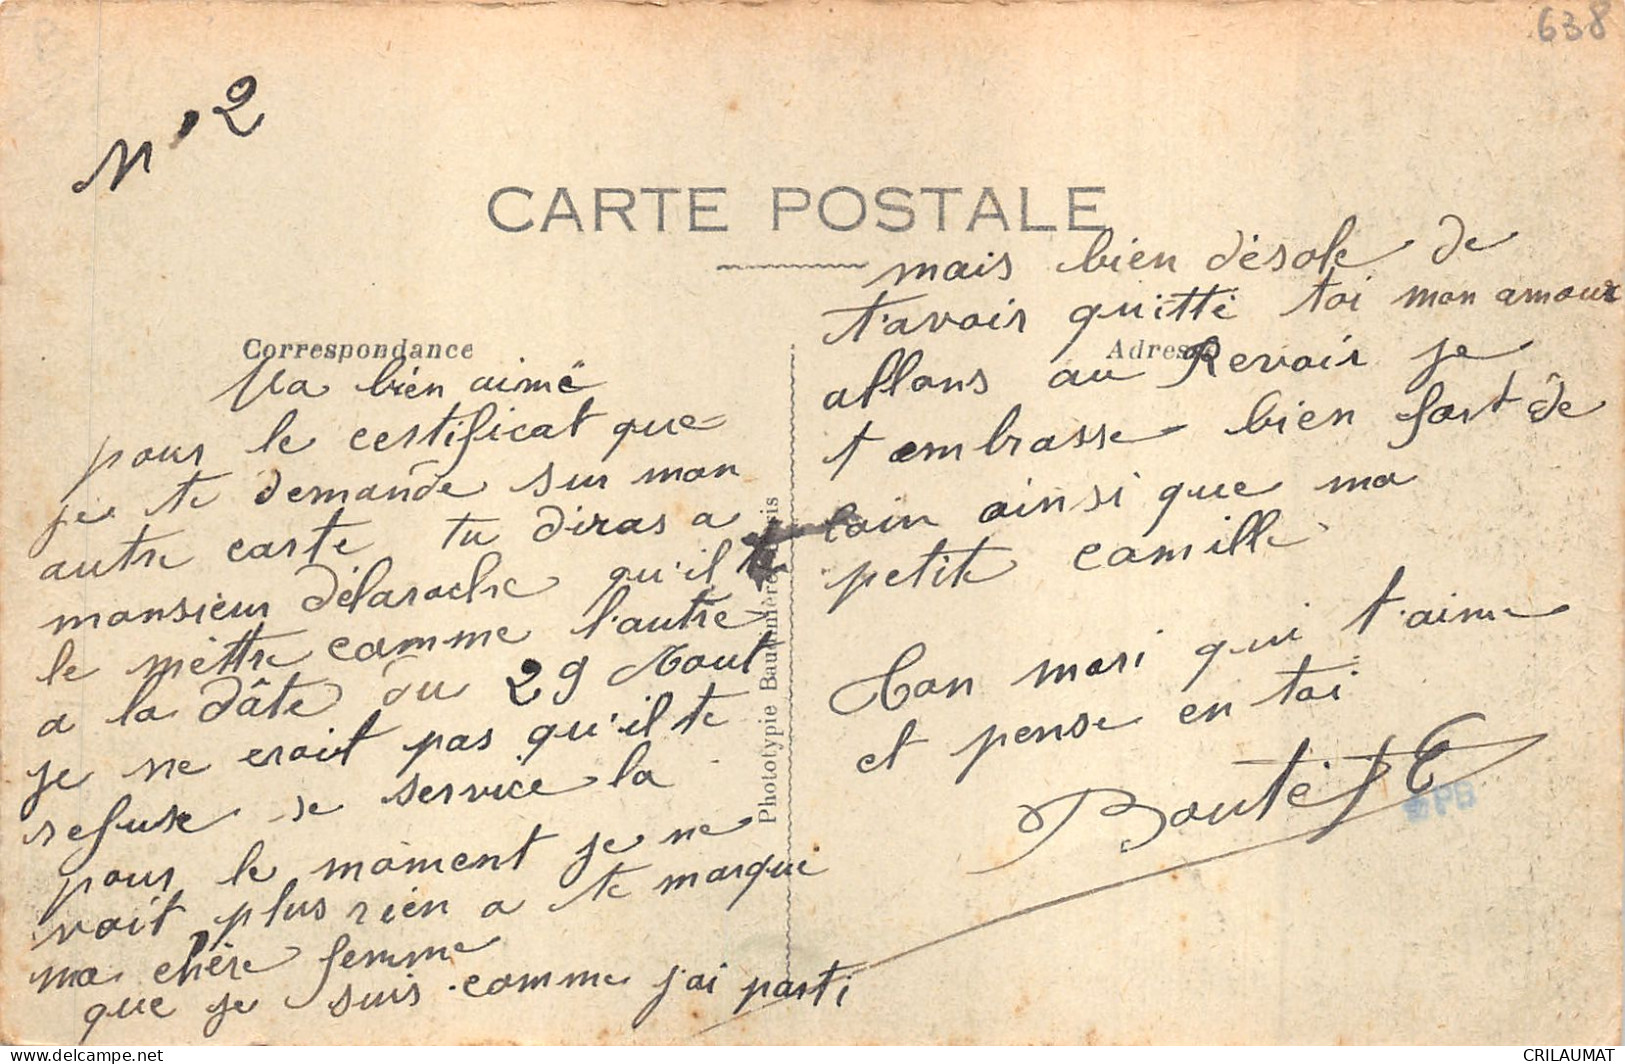 638
N° 2
CARTE POSTALE
Correspondance
Adresse
Ma bien aimé
pour le certificat que
je te demande sur mon
autre carte tu diras a
monsieur délaroche qu'il
le mettre comme l'autre
a la dâte du 29 Aout
je ne croit pas qu'il te
refuse se service la
pour le moment je ne
voit plus rien a te marqué
ma chère femme
que je suis comme j'ai parti
mais bien désole de
t'avoir quitté toi mon amour
allons au Revoir je
t embrasse bien fort de
loin ainsi que ma
petite camille
Ton mari qui t'aime
et pense en toi
Boutet C
PB
Phototypie Baudinière
CRILAUMAT